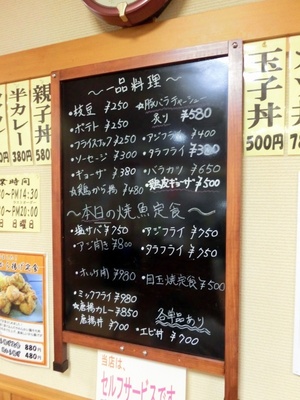 ～一品料理～
・枝豆 ¥250
・ポテト ¥250
・フライスティック ¥250
・ソーセージ ¥300
・ギョーザ ¥380
☆鶏から揚 ¥480
☆豚バラチャーシュー
炙り ¥580
・アジフライ ¥400
・タラフライ ¥380
・バラカツ ¥650
・鶏皮ギョーザ ¥500
～本日の焼魚定食～
・塩サバ ¥750
・アジ開き ¥800
・アジフライ ¥750
・タラフライ ¥750
・ミックスフライ ¥980
☆唐揚カレー ¥850
・唐揚丼 ¥700
・目玉焼定食 ¥500
各単品あり
・エビ丼 ¥700
半カレー 380円
親子丼 580円
玉子丼 500円
業時間
PM14:30
PM20:00
日 日曜日
880円
440円
当店は、
セルフサービスです